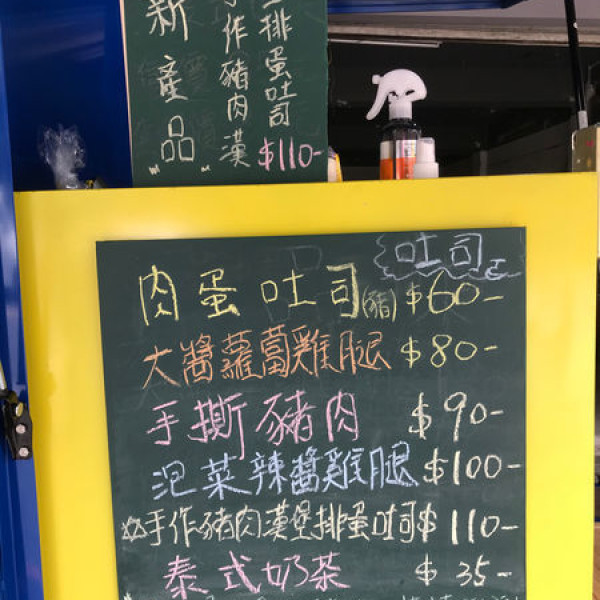 新產品
手作豬肉漢
堡排蛋吐司
$110-
吐司
肉蛋吐司(豬) $60-
大醬蘿蔔雞腿 $80-
手撕豬肉 $90-
泡菜辣醬雞腿 $100-
☆手作豬肉漢堡排蛋吐司 $110-
泰式奶茶 $35-